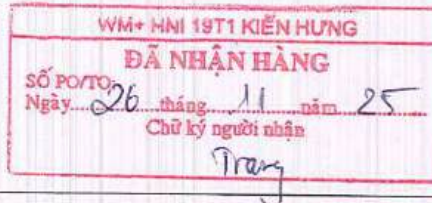 WM+ HNI 19T1 KIẾN HƯNG
ĐÃ NHẬN HÀNG
SỐ PO/TO:
Ngày 26 tháng 11 năm 25
Chữ ký người nhận
Trang